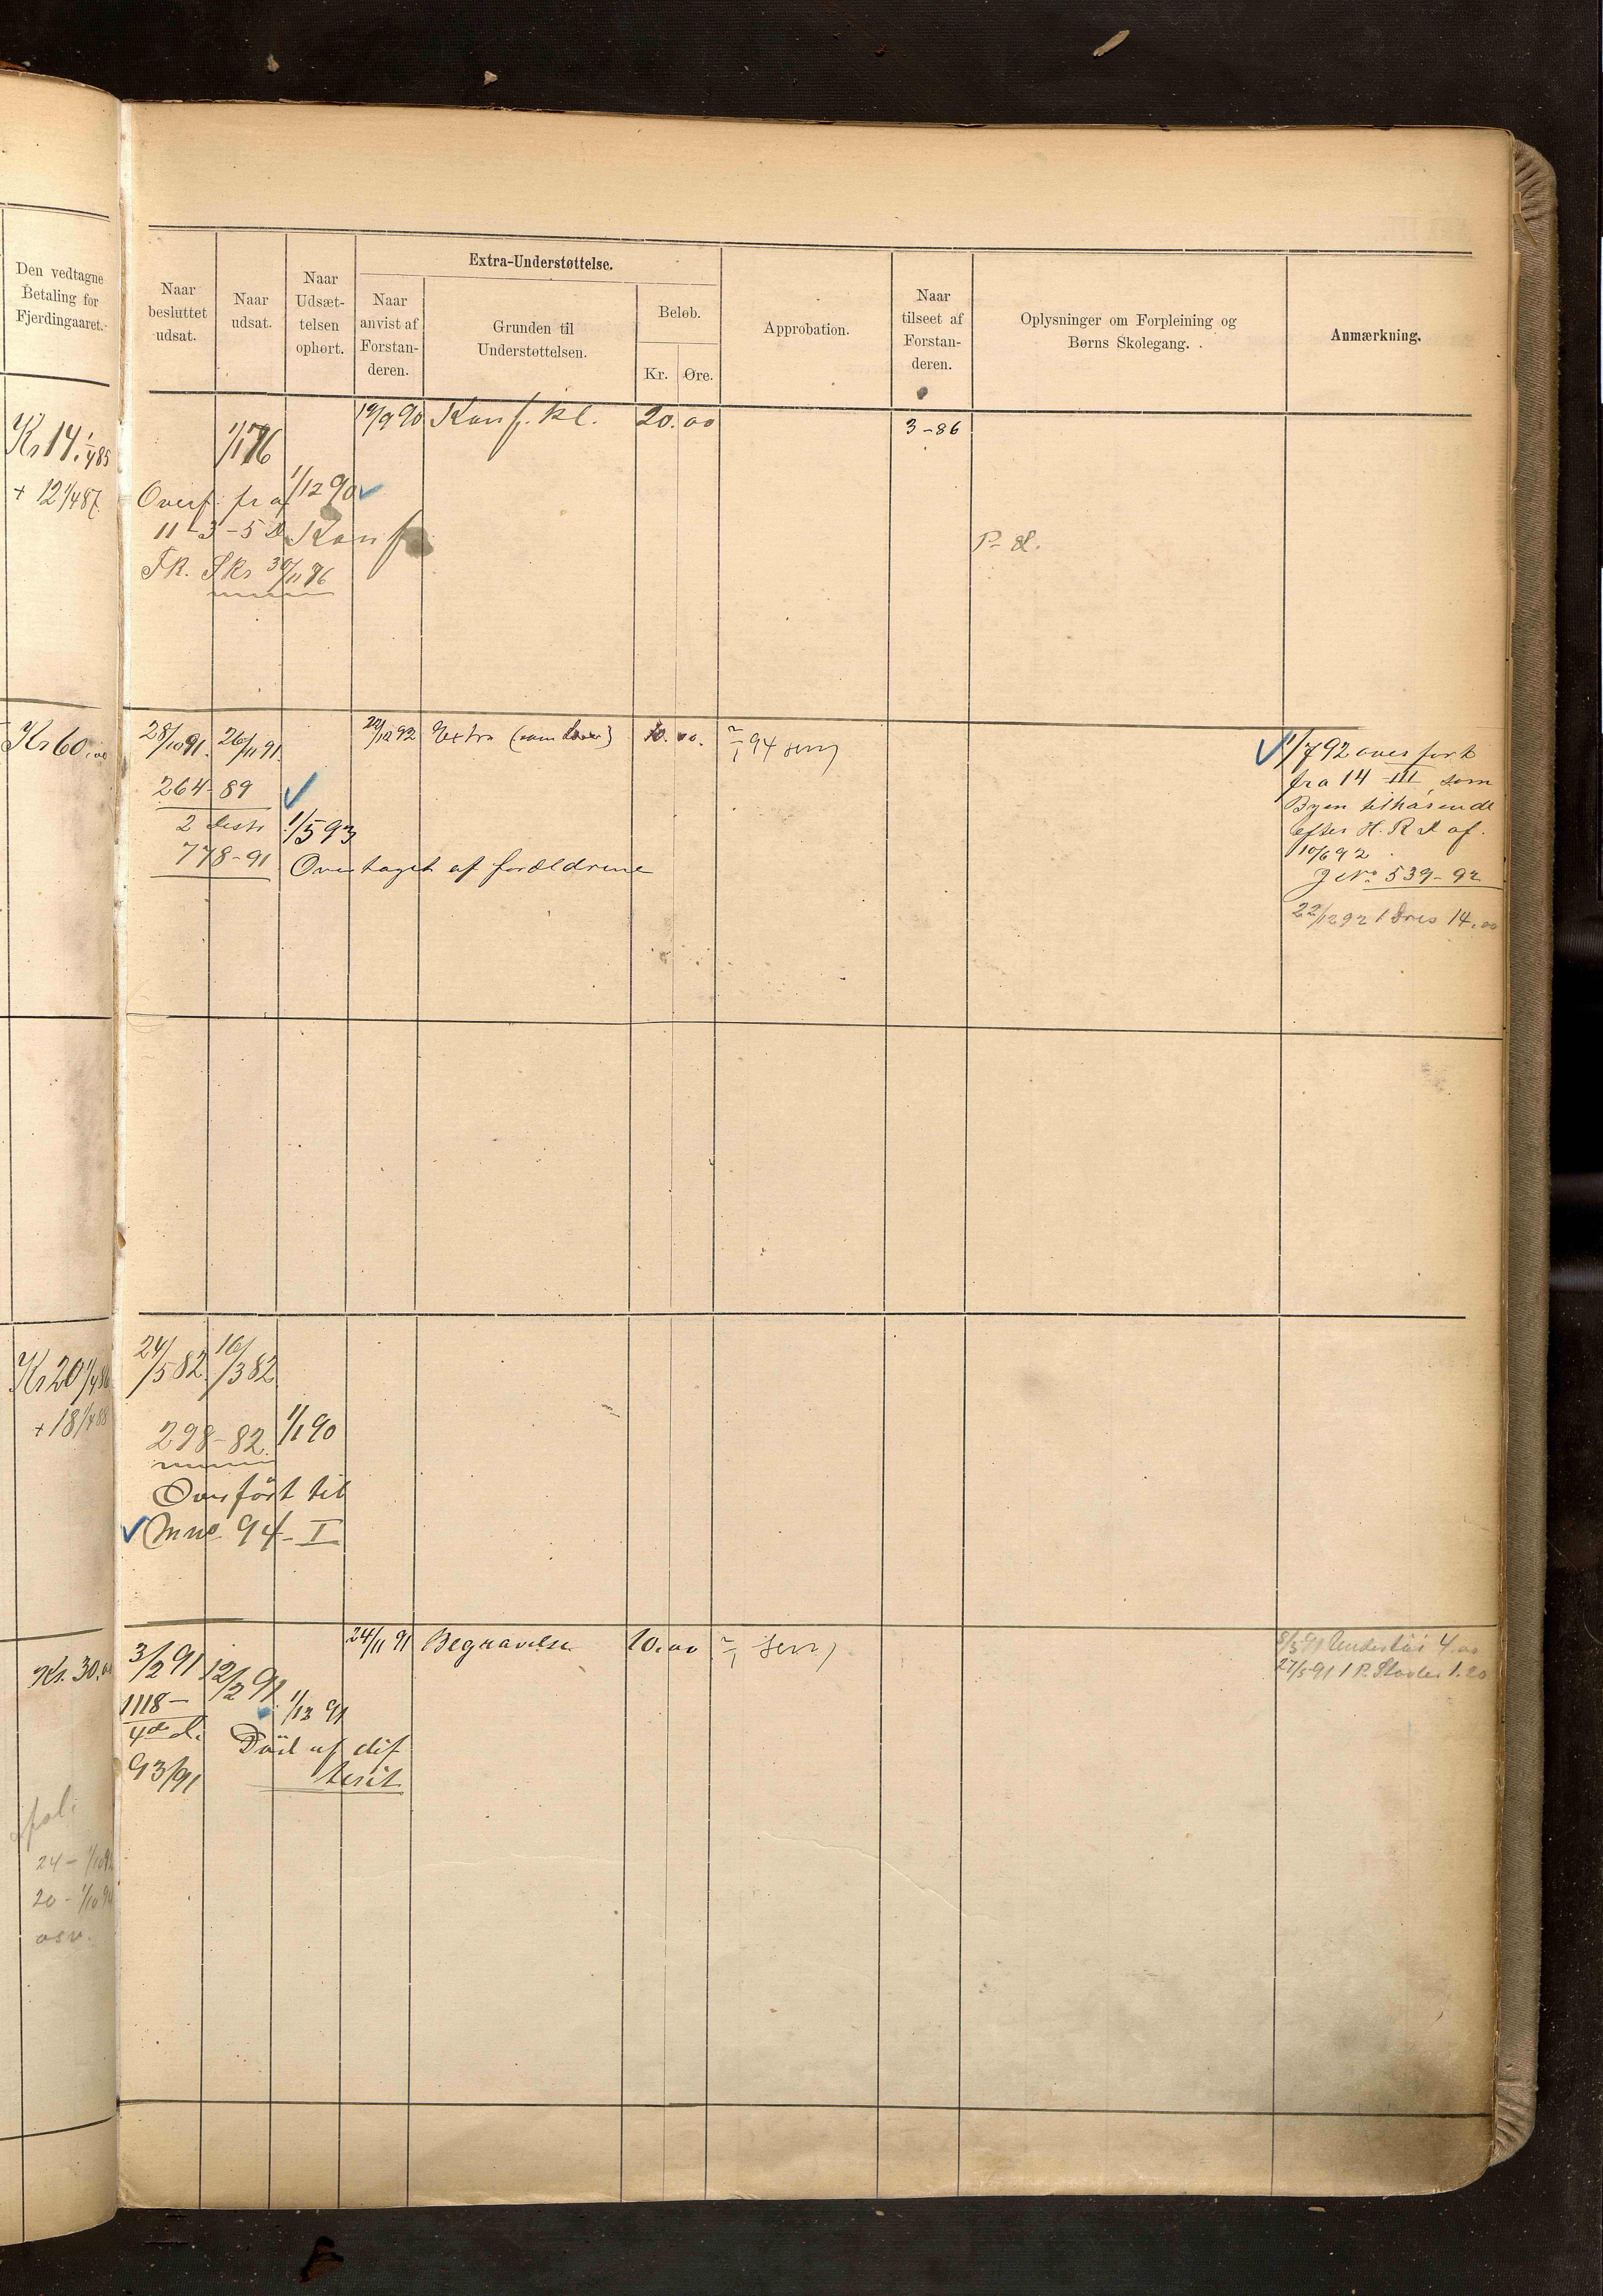 Den vedtagne
Betaling for
Fjerdingaaret.
Naar
besluttet
udsat.
Naar
udsat.
Naar
Udsæt-
telsen
ophørt.
Extra-Understøttelse.
Naar
anvist af
Forstan-
deren.
Grunden til
Understøttelsen.
Beløb.
Kr. Øre.
Approbation.
Naar
tilseet af
Forstan-
deren.
Oplysninger om Forpleining og
Børns Skolegang.
Anmærkning.
Kr 14. 1/4 85
+ 12 1/4 87
1/1 76
19/9 90 Konf. kl. 20.00
3-86
Overf. fra 1/12 90
11-3-5 Konf
F.K. Skr 30/11 76
Kr 60.00
28/10 91. 26/11 91.
264-89
778-91
1/5 93
Overtaget af forældrene
22/12 92 Extra 10.00.
94
1/7 92 overført
fra 14 III som
Byen tilhørende
efter H. R. d af.
10/6 92
J No 539-92
22/12 92 1 Dres 14.00
Kr 20 1/4 86
+ 18 1/4 88
24/5 82. 16/3 82
298-82. 1/1 90
Overført til
Mno 94-I
Kr. 30.00
3/2 91 12/2 91
1118-
93/91
1/12 91
Død af dif
terit
24/11 91 Begravelse 10.00
8/5 91 4.00
27/5 91 1 P. 1.20
24 - 1/10 92
20 - 1/10 94
osv.